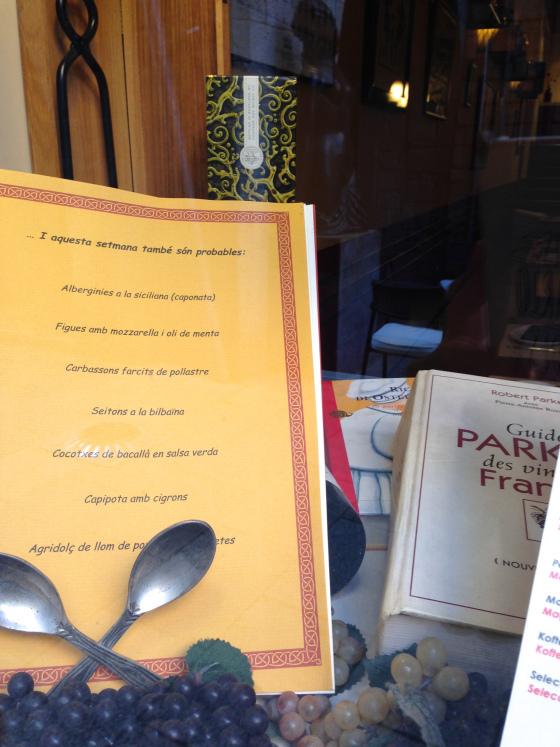 ... I aquesta setmana també són probables:
Alberginies a la siciliana (caponata)
Figues amb mozzarella i oli de menta
Carbassons farcits de pollastre
Seitons a la bilbaïna
Cocotxes de bacallà en salsa verda
Capipota amb cigrons
Agridolç de llom de
Robert Parke
Guide
PARK
des vin
Fran
( NOUV
Koff
Koffe
Selec
Selec